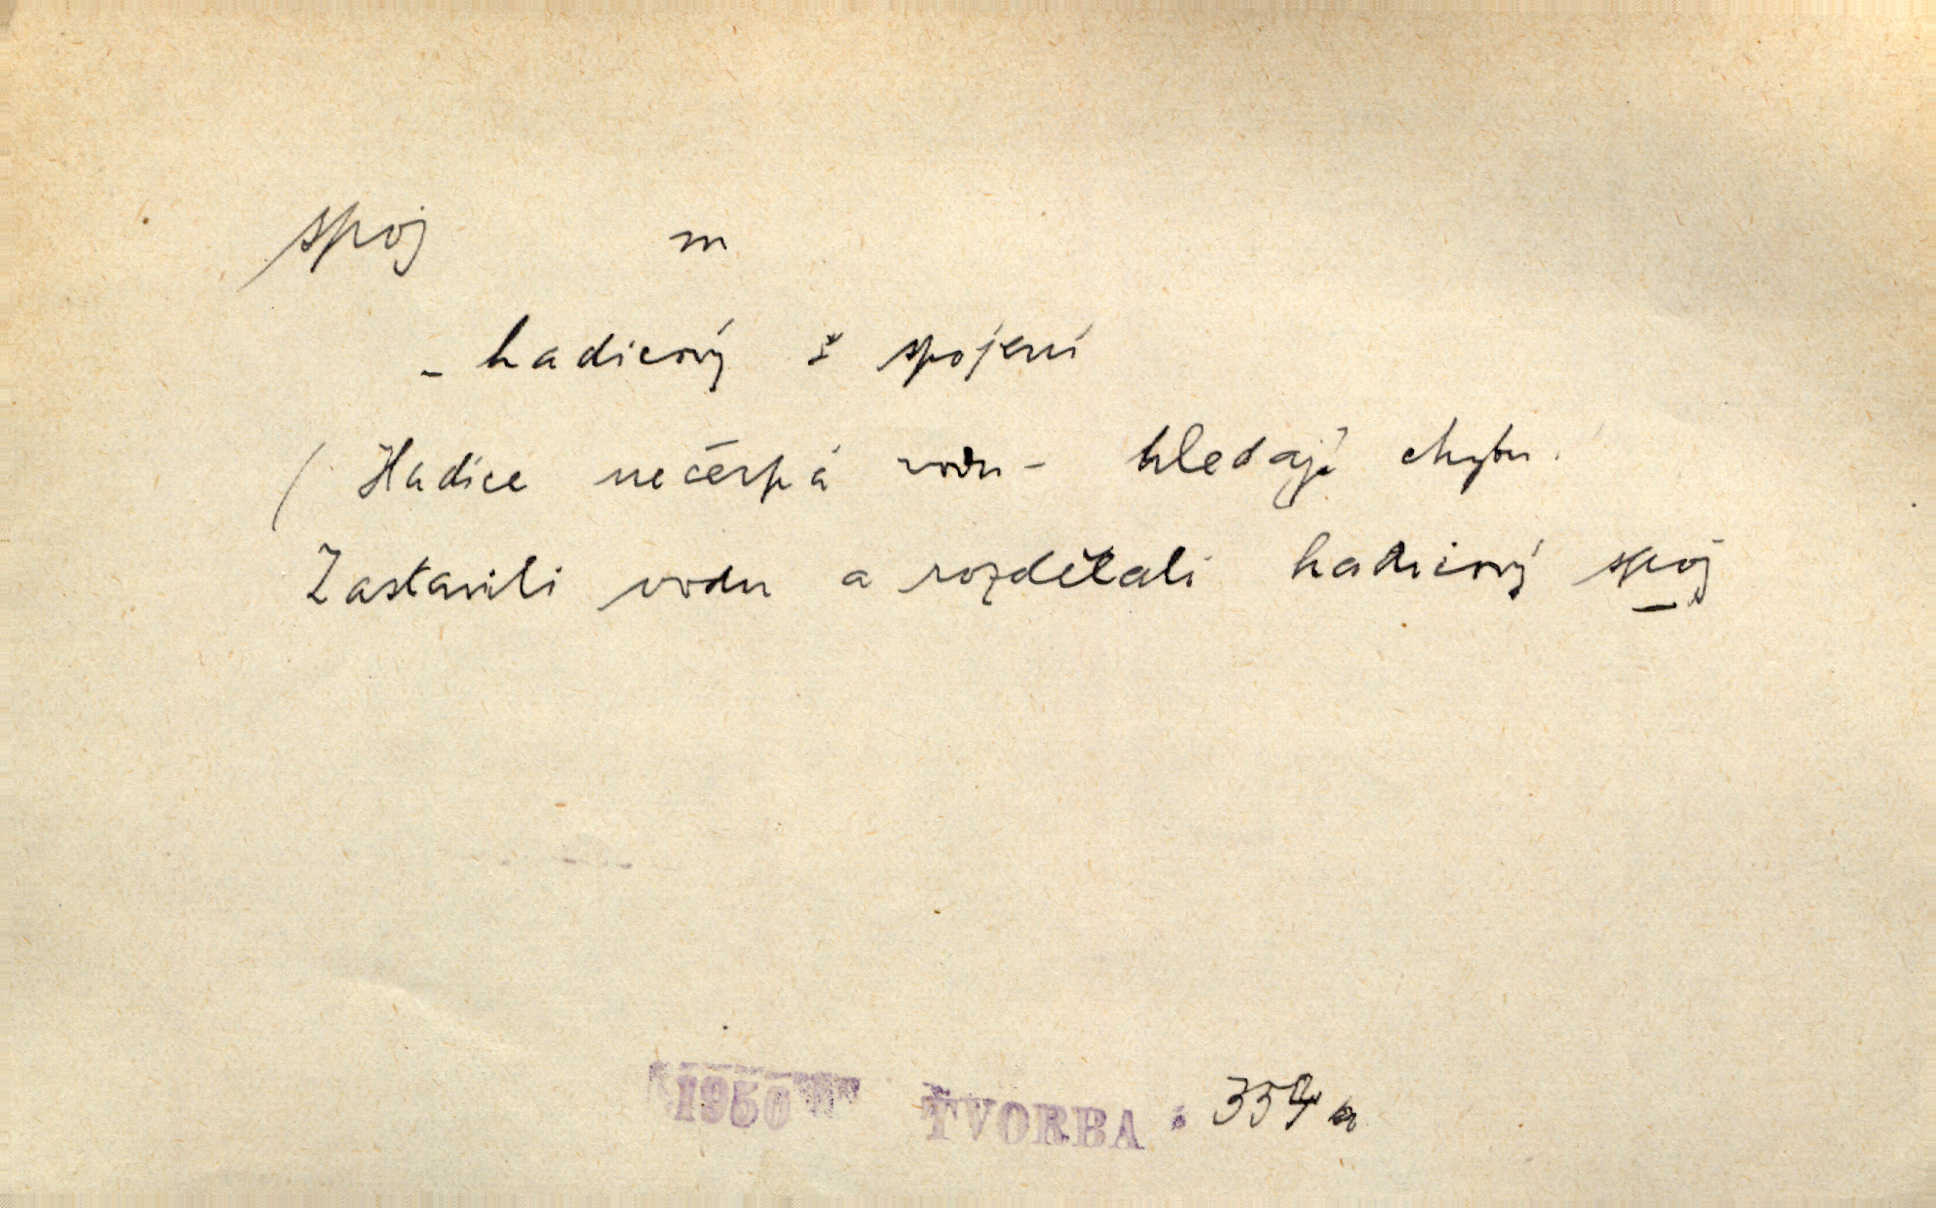 spoj m
- hadicový ž spojení
( Hadice nečerpá vodu - hledají chybu.
Zastavili vodu a rozdělali hadicový spoj
1950 TVORBA 354